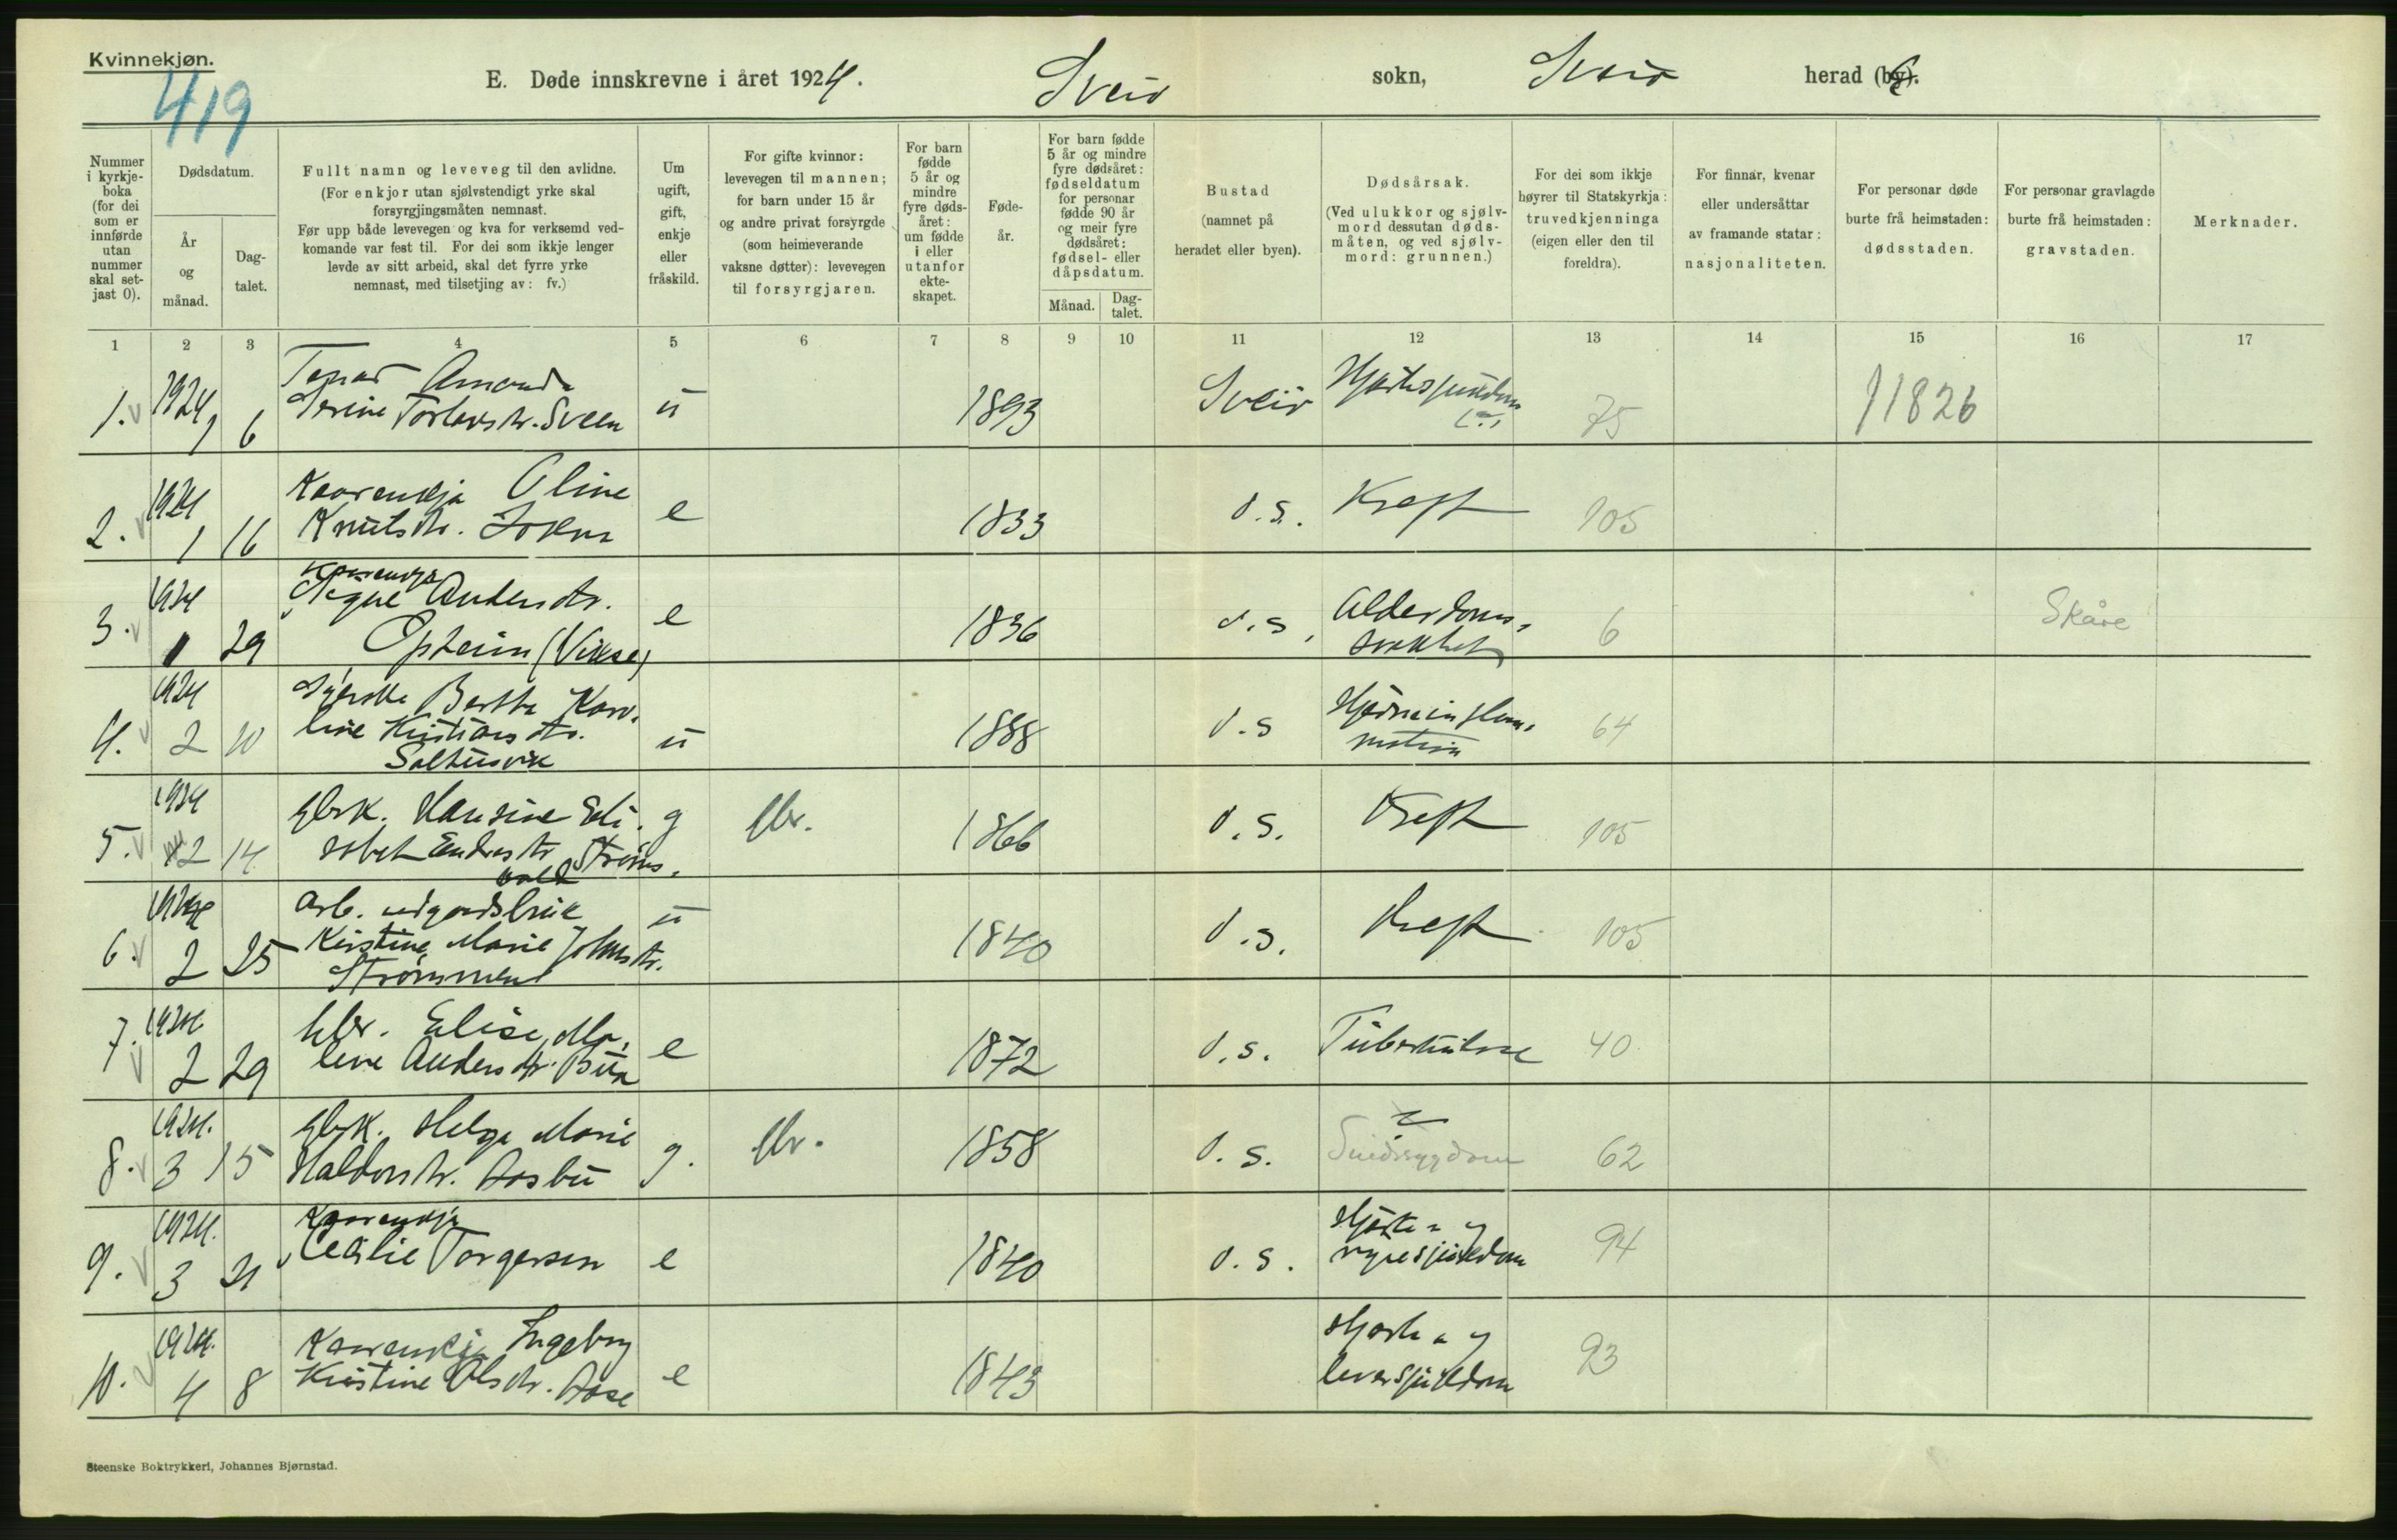 Kvinnekjøn.
419
E. Døde innskrevne i året 1924.
Sveio sokn, Sveio herad (by).
Nummer i kyrkje-boka (for dei som er innførde utan nummer skal set-jast 0).
Dødsdatum.
År og månad.
Dag-talet.
Fullt namn og leveveg til den avlidne.
(For enkjor utan sjølvstendigt yrke skal forsyrgjingsmåten nemnast.
Før upp både levevegen og kva for verksemd ved-komande var fest til. For dei som ikkje lenger levde av sitt arbeid, skal det fyrre yrke nemnast, med tilsetjing av: fv.)
Um ugift, gift, enkje eller fråskild.
For gifte kvinnor: levevegen til mannen; for barn under 15 år og andre privat forsyrgde (som heimeverande vaksne døtter): levevegen til forsyrgjaren.
For barn fødde 5 år og mindre fyre døds-året: um fødde i eller utanfor ekte-skapet.
Føde-år.
For barn fødde 5 år og mindre fyre dødsåret: fødseldatum for personar fødde 90 år og meir fyre dødsåret: fødsel- eller dåpsdatum.
Månad.
Dag-talet.
Bustad (namnet på heradet eller byen).
Dødsårsak.
(Ved ulukkor og sjølv-mord dessutan døds-måten, og ved sjølv-mord: grunnen.)
For dei som ikkje høyrer til Statskyrkja: truvedkjenninga (eigen eller den til foreldra).
For finnar, kvenar eller undersåttar av framande statar: nasjonaliteten.
For personar døde burte frå heimstaden: dødsstaden.
For personar gravlagde burte frå heimstaden: gravstaden.
Merknader.
1 2 3 4 5 6 7 8 9 10 11 12 13 14 15 16 17
1. 1924 1 6 Amanda Serine Torlavsdr. Sveen u 1893 Sveio 75 11826
2. 1924 1 16 Kaarenkja Oline Knutsdr. e 1833 d.s. Kreft 105
3. 1924 1 29 Kaarenkja Andersdr. Opheim (Vikse) e 1836 d.s. Alderdoms-svakhet 6 Skåre
4. 1924 2 10 Bertha Karo-line Kristiansdr. Salthusvik u 1888 d.s 64
5. 1924 2 14 Gbrk. Hansine Eli-sabet Endresdr. Strøms-vold g Gbr. 1866 d.s. Kreft 105
6. 1924 2 25 Arb. Kirstine Marie Johnsdr. Strømmen u 1840 d.s. Kreft 105
7. 1924 2 29 Elise Ma-lene Andersdr. Bua e 1872 d.s. Tuberkulose 40
8. 1924. 3 15 Gbrk. Helga Marie Haldorsdr. Aasbu g. Gbr. 1858 d.s. 62
9. 1924. 3 21 Kaarenkja Cecilie Torgersen e 1840 d.s. Hjarte- og nyresjukdom 94
10. 1924. 4 8 Kaarenkja Ingeborg Kristine Olsdr. Aase e 1843 Hjarte- og leversjukdom 93
Steenske Boktrykkeri, Johannes Bjørnstad.